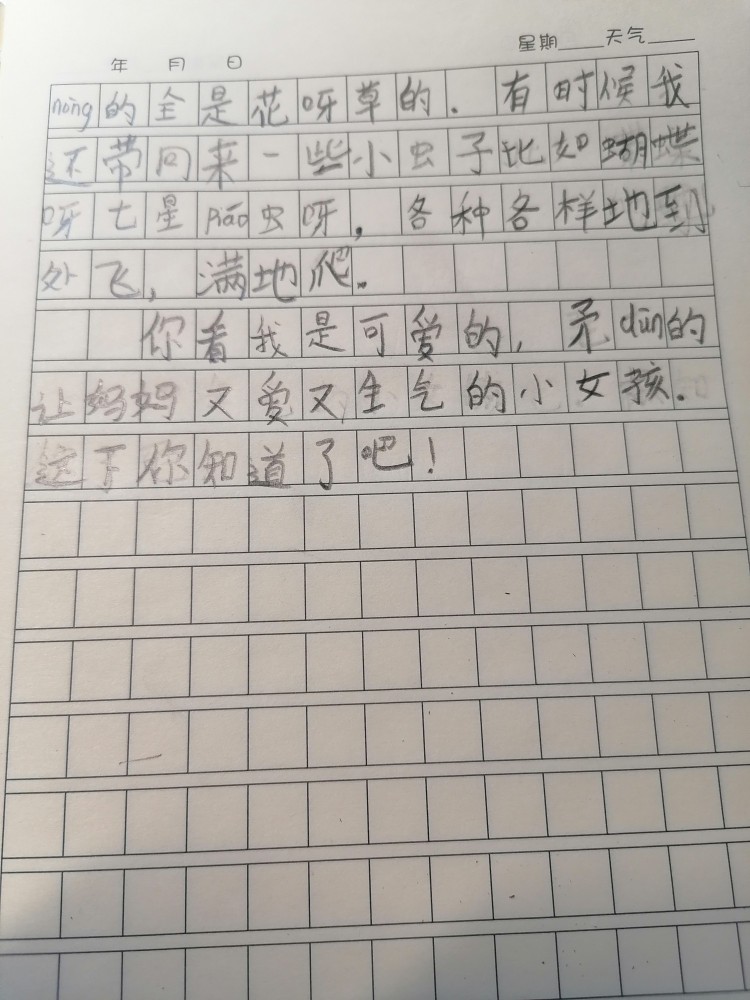 星期____天气____
年 月 日
nòng的全是花呀草的.有时候我
还带回来一些小虫子比如蝴蝶
呀七星piáo虫呀,各种各样地到
处飞,满地爬.
你看我是可爱的,矛dùn的
让妈妈又爱又生气的小女孩.
这下你知道了吧!